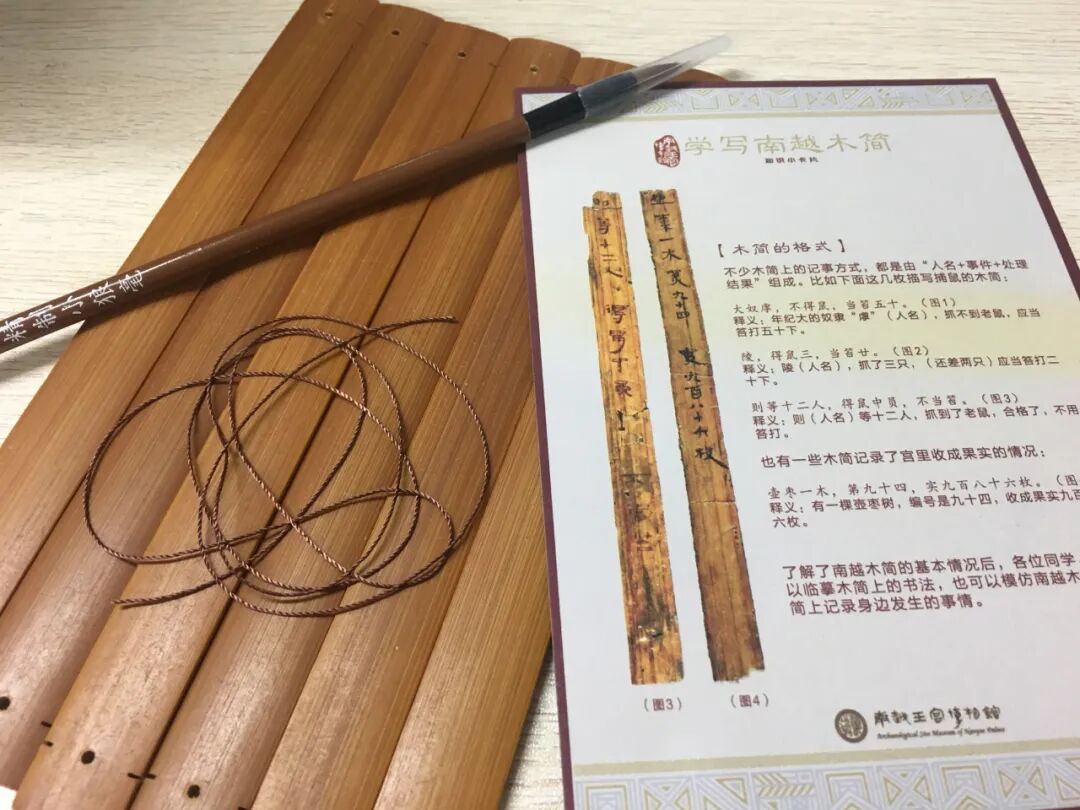 精制小狼毫
学写南越木简
知识小卡片
【木简的格式】
不少木简上的记事方式，都是由“人名+事件+处理
结果”组成。比如下面这几枚描写捕鼠的木简：
大奴虖，不得鼠，当笞五十。（图1）
释义：年纪大的奴隶“虖”（人名），抓不到老鼠，应当
笞打五十下。
陵，得鼠三，当笞廿。（图2）
释义：陵（人名），抓了三只，（还差两只）应当笞打二
十下。
则等十二人，得鼠中员，不当笞。（图3）
释义：则（人名）等十二人，抓到了老鼠，合格了，不用
笞打。
也有一些木简记录了宫里收成果实的情况：
壶枣一木，第九十四，实九百八十六枚。（图
释义：有一棵壶枣树，编号是九十四，收成果实九百
六枚。
了解了南越木简的基本情况后，各位同学
以临摹木简上的书法，也可以模仿南越木
简上记录身边发生的事情。
第一木
九十四
九百八十六枚
（图3）
（图4）
南越王宫博物馆
Archaeological Site Museum of Nanyue Palace